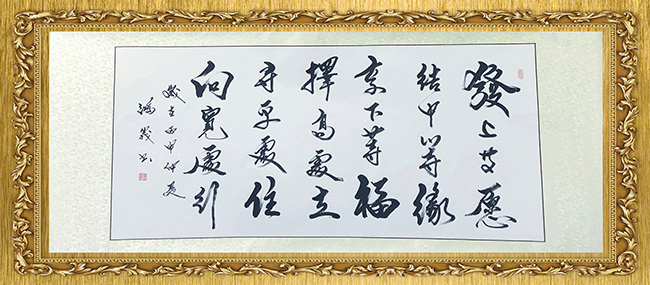 發上等愿
結中等緣
享下等福
擇高處立
尋平處住
向寬處行
歲在丙申仲夏
書